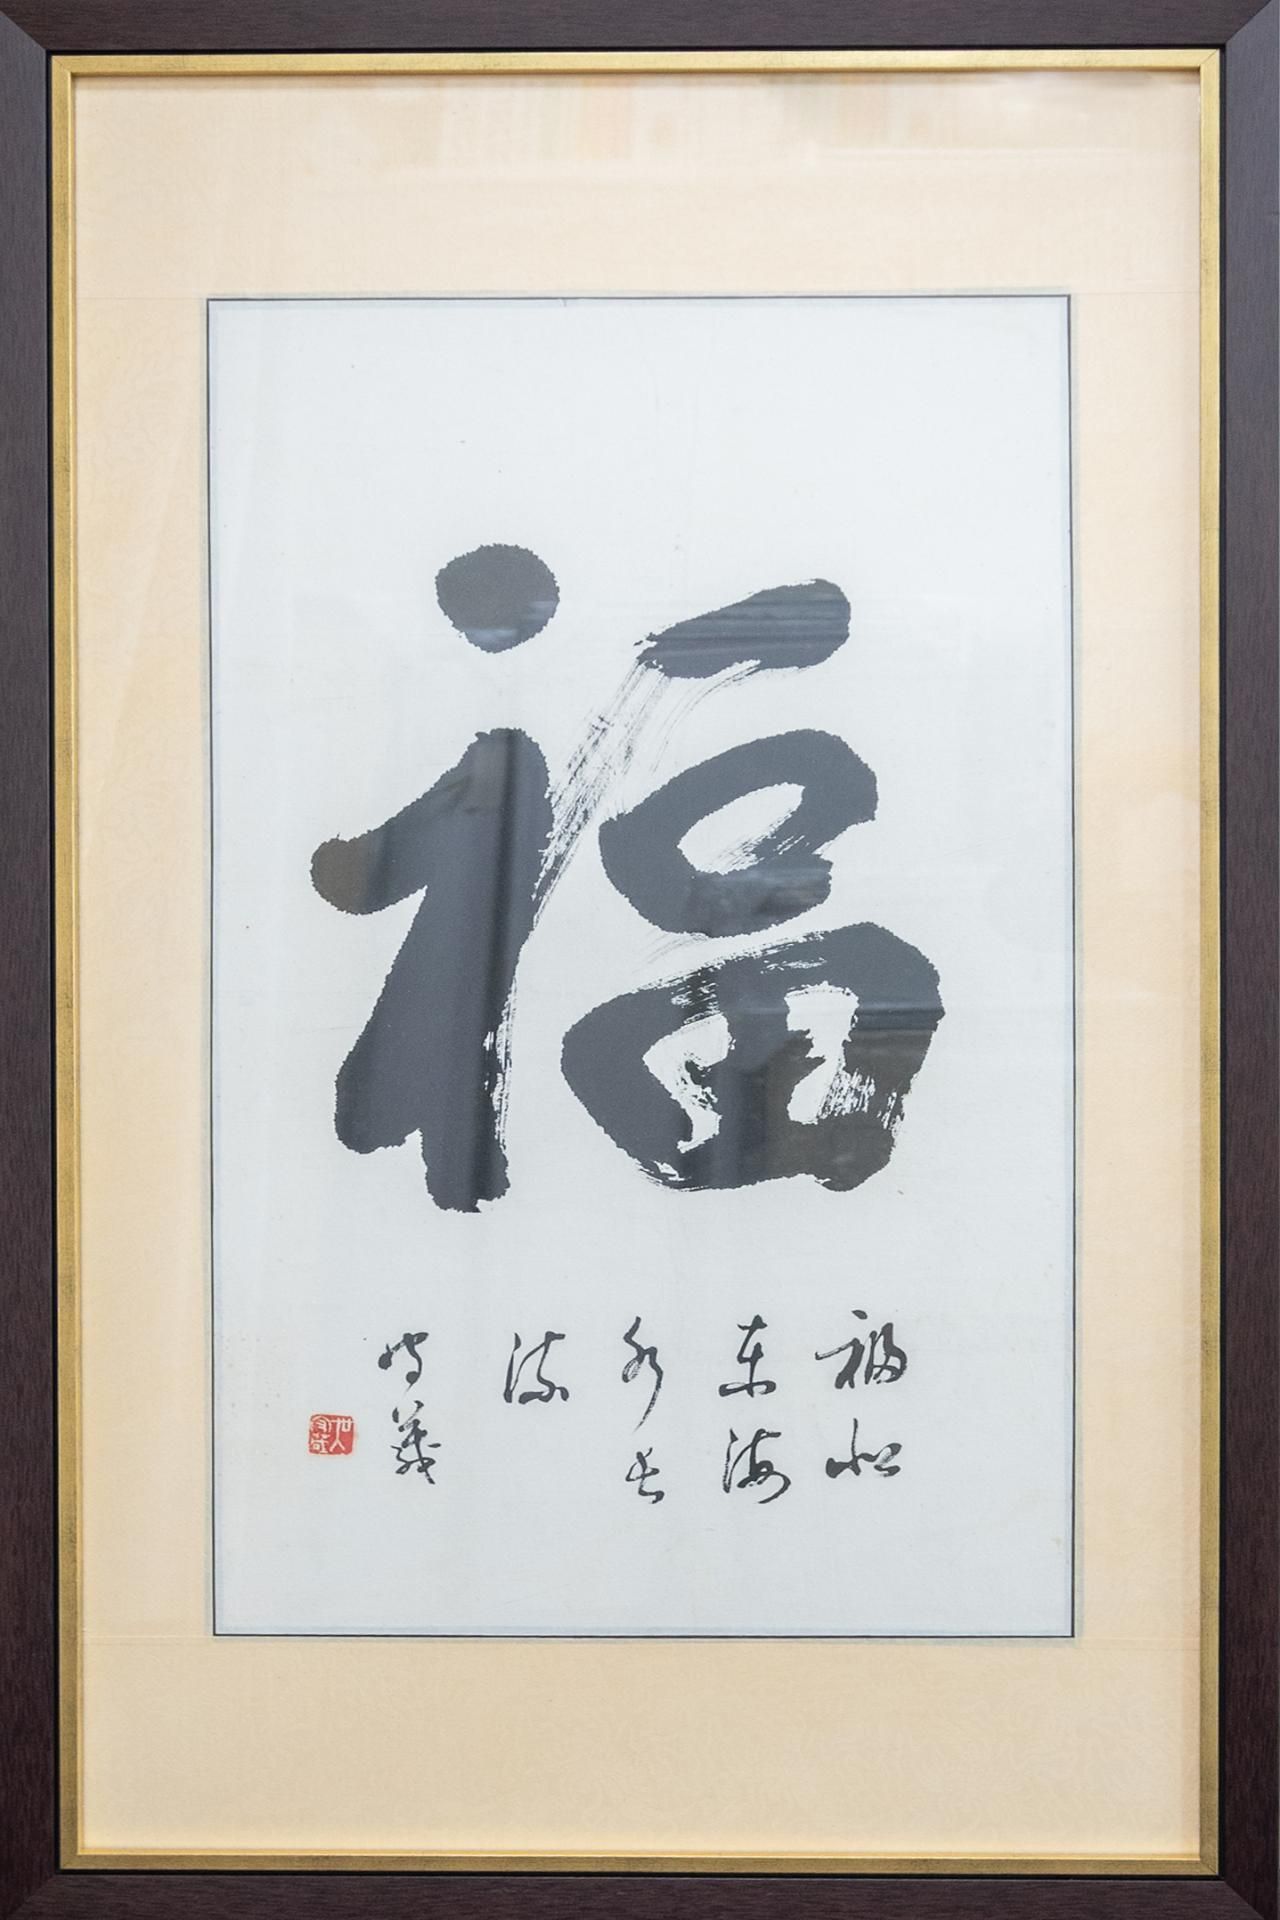 福
福如
东海
水长
流
守義